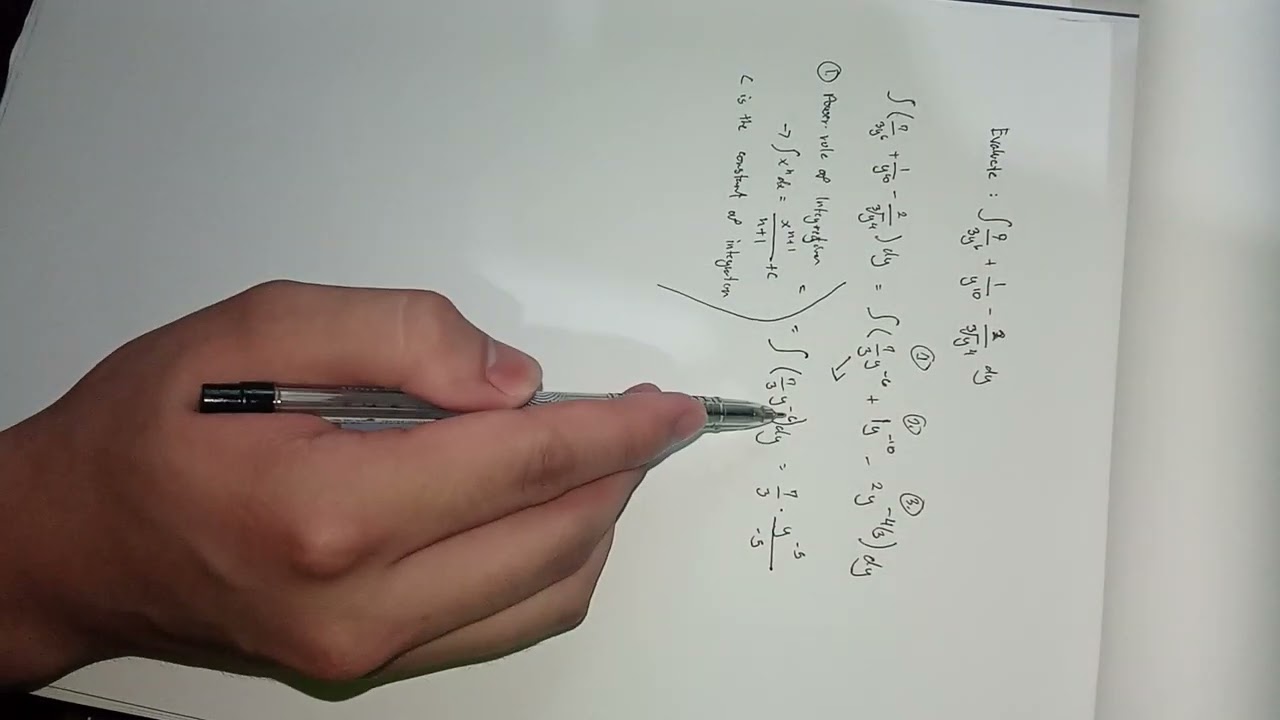 Evaluate : ∫ 7/3y⁶ + 1/y¹⁰ − 2/∛y⁴ dy
① ② ③
∫ ( 7/3y⁶ + 1/y¹⁰ − 2/∛y⁴ ) dy = ∫ ( 7/3 y⁻⁶ + 1y⁻¹⁰ − 2y^(-4/3) ) dy
① Power-rule of Integration
→ ∫ xⁿ dx = xⁿ⁺¹/n+1 + c
C is the constant of integration
= ∫ ( 7/3 y⁻⁶ ) dy = 7/3 · y⁻⁵/-5